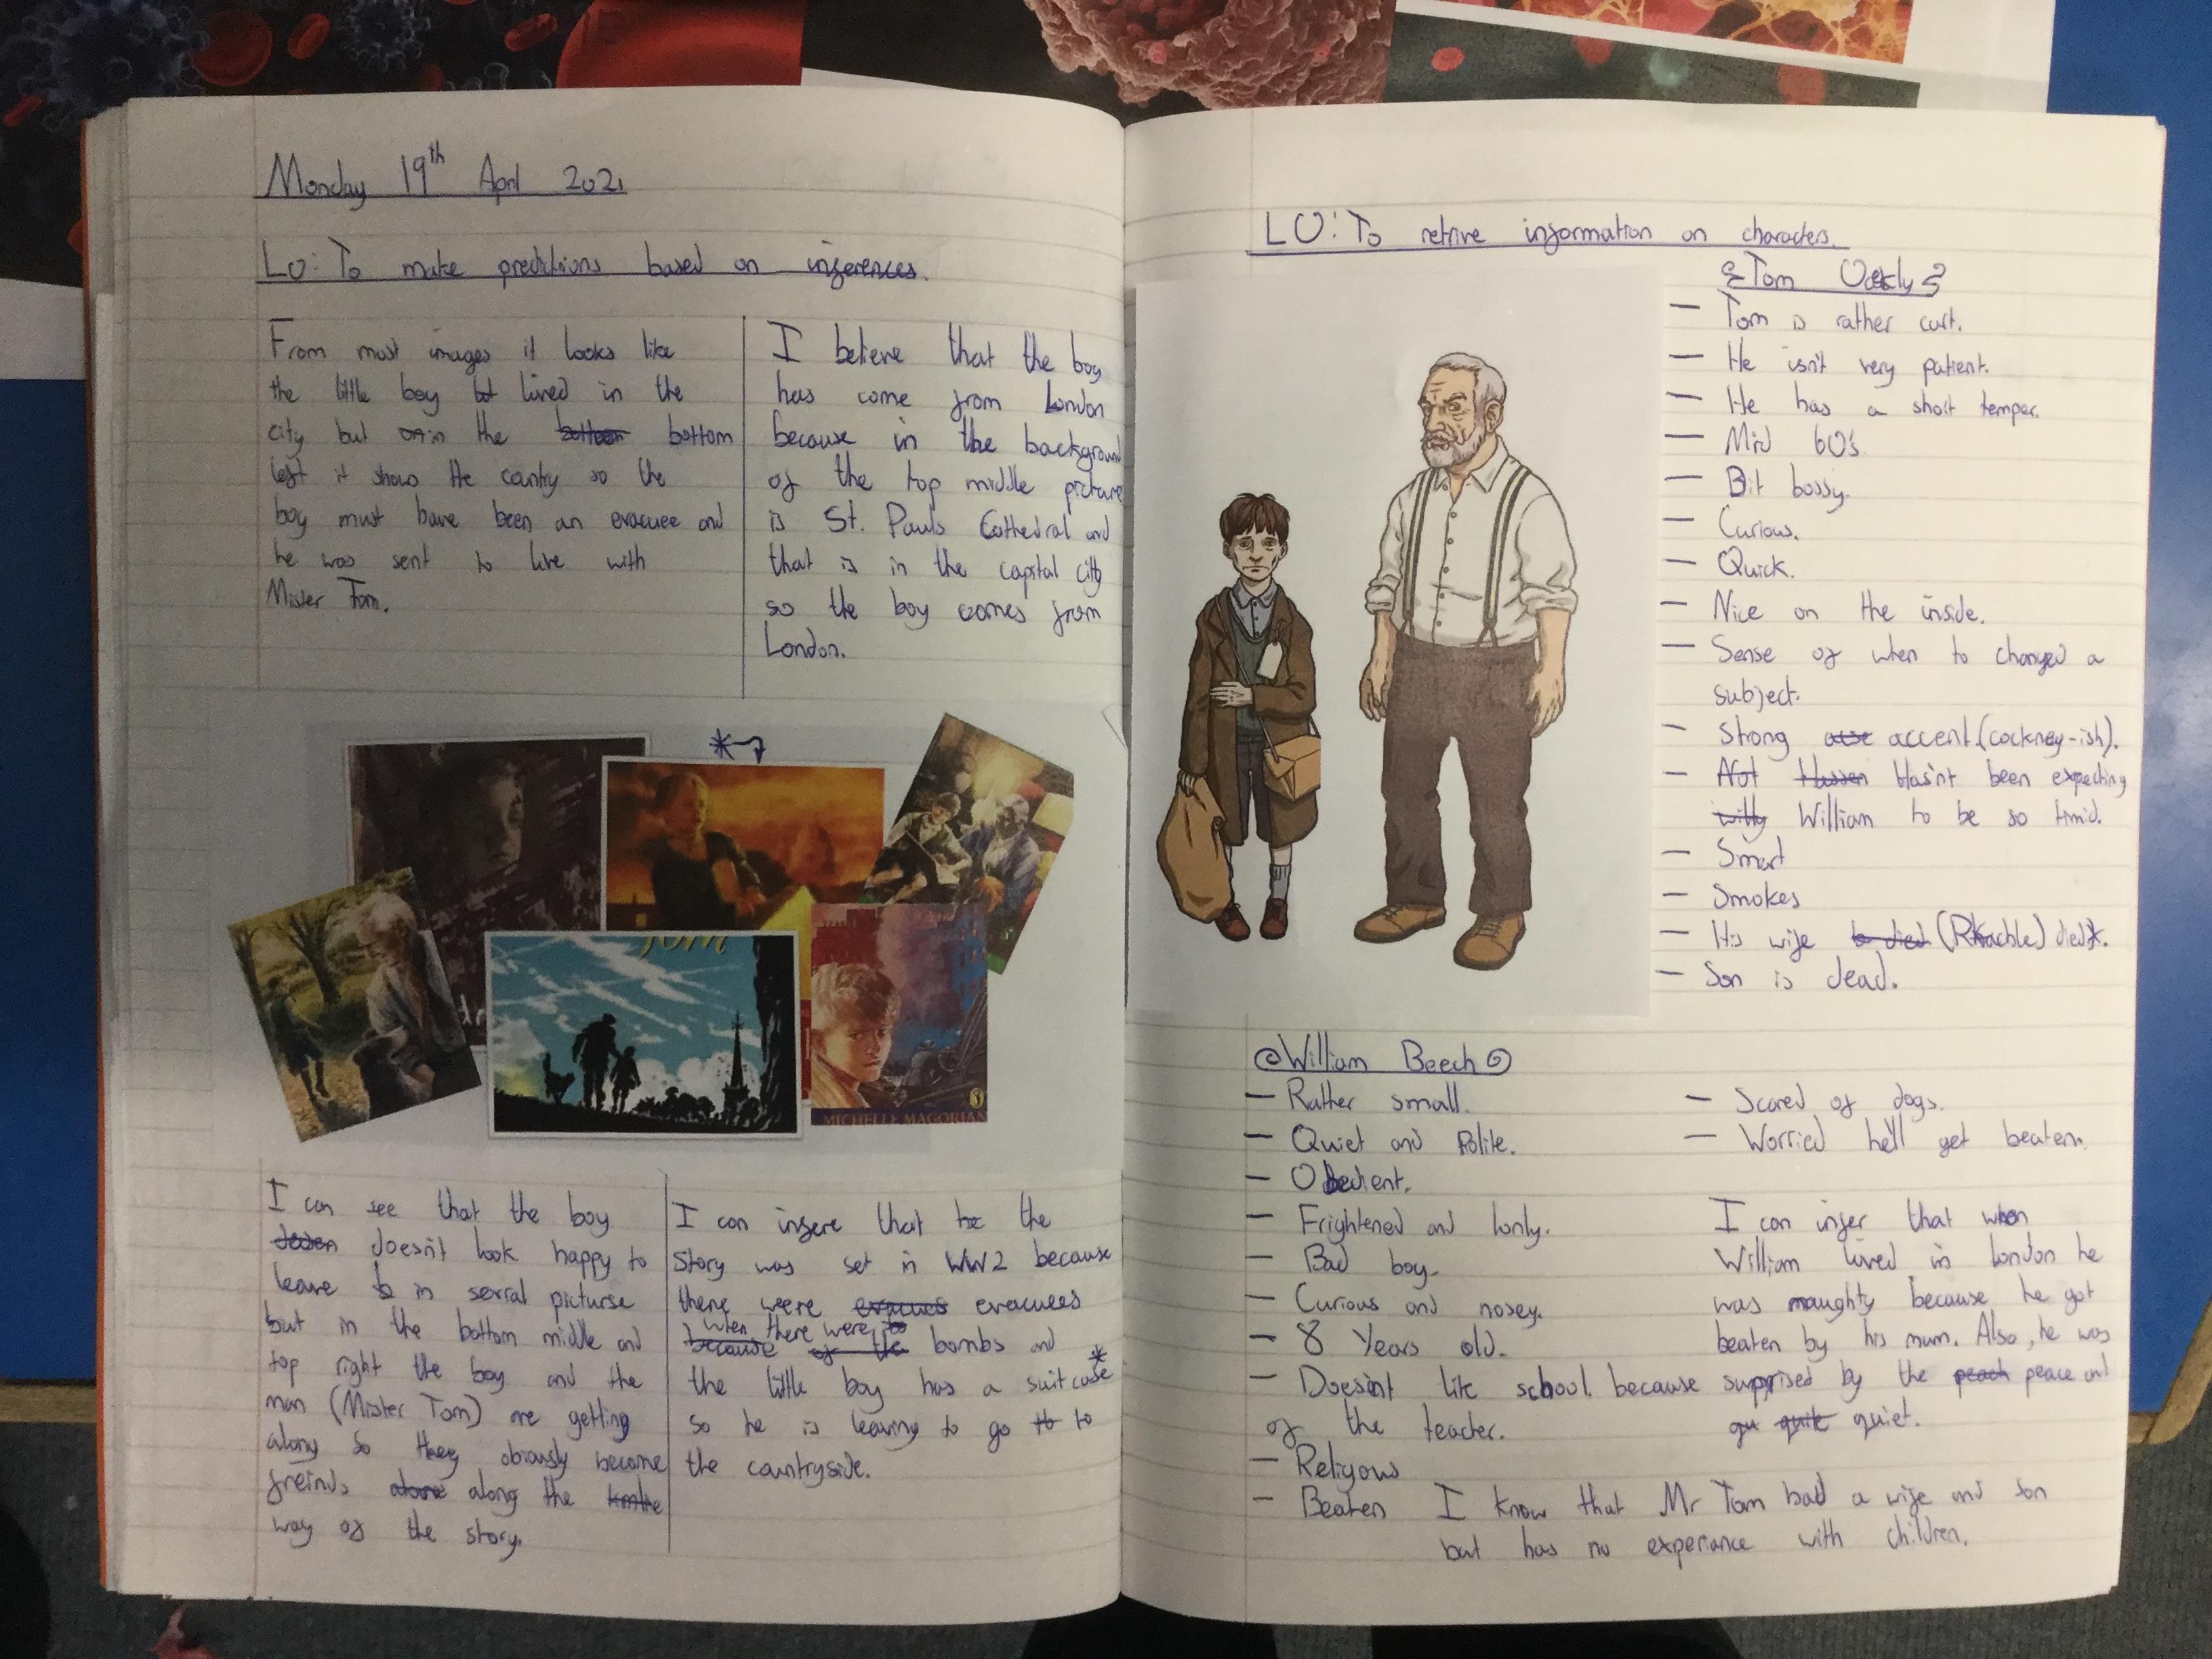 Monday 19th April 2021
LO: To make predictions based on inferences.
From most images it looks like
the little boy lived in the
city but in the bottom
left it shows the contry so the
boy must have been an evacuee and
he was sent to live with
Mister Tom.
I believe that the boy
has come from London
because in the background
of the top middle picture
is St. Pauls Cathedral and
that is in the capital city
so the boy comes from
London.
Tom
MICHELLE MAGORIAN
I can see that the boy
doesn't look happy to
leave in sevral picturse
but in the bottom middle and
top right the boy and the
man (Mister Tom) are getting
along so they obviously become
freinds along the
way of the story.
I can infere that the
story was set in WW2 because
there were evacuees
when there were bombs and
the little boy has a suitcase*
so he is leaving to go to
the countryside.
LO: To retrive information on characters.
Tom Oakly
- Tom is rather curt.
- He isn't very patient.
- He has a short temper.
- Mid 60's
- Bit bossy.
- Curious.
- Quick.
- Nice on the inside.
- Sense of when to changed a
subject.
- Strong accent.(cockney-ish).
- Hasn't been expecting
William to be so timid.
- Smart
- Smokes
- His wife (Rachle) died.
- Son is dead.
William Beech
- Rather small.
- Quiet and Polite.
- Obedient.
- Frightened and lonly.
- Bad boy.
- Curious and nosey.
- 8 Years old.
- Doesn't like school because
of the teacher.
- Religous
- Beaten
- Scared of dogs.
- Worried he'll get beaten.
I can infer that when
William lived in london he
was naughty because he got
beaten by his mum. Also, he was
surprised by the peace and
quiet.
I know that Mr Tom had a wife and son
but has no experiance with children.